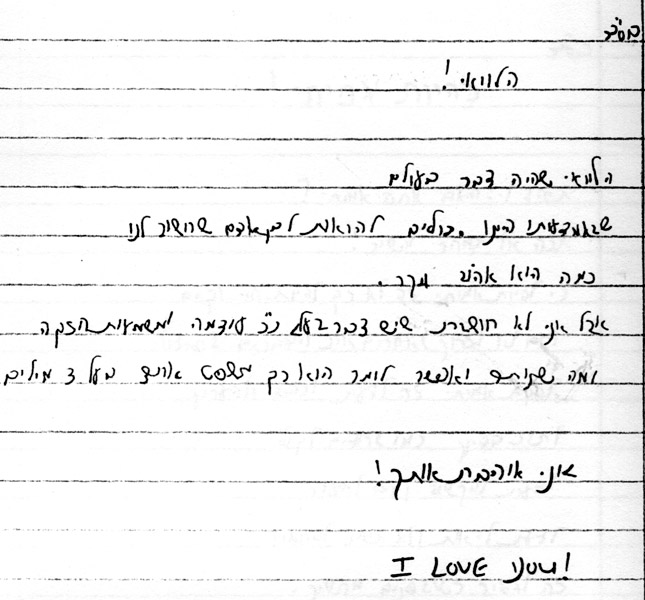 בס"ד
הלוואי!
הלוואי שהיה דבר בעולם
שבאמצעותו היינו יכולים להראות לבן אדם שחשוב לנו
כמה הוא אהוב ויקר.
אבל אני לא חושבת שיש דבר בעל כ"כ עוצמה ומשמעות חזקה
ומה ואפשר לומר הוא רק משפט אחד בעל 3 מילים
אני אוהבת אותך!
I LOVE YOU!